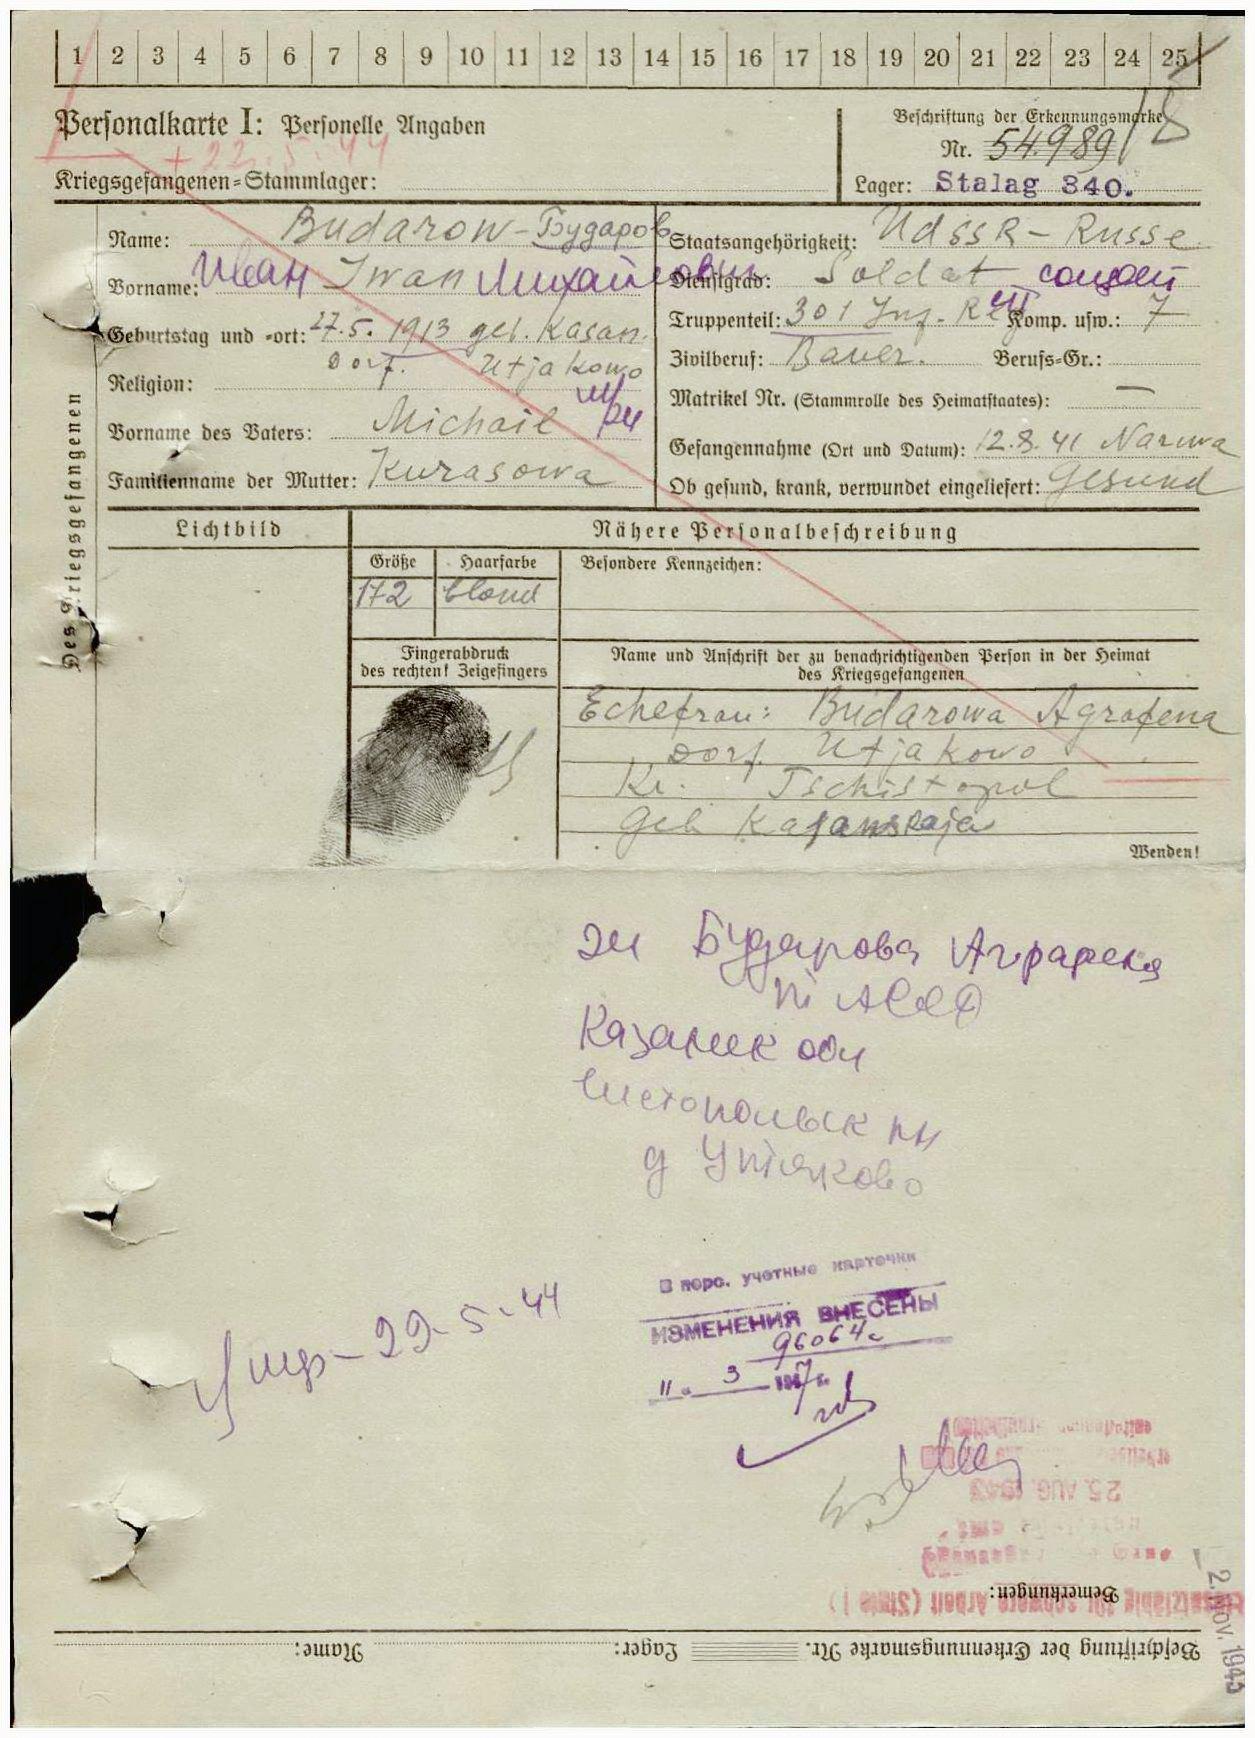 1 2 3 4 5 6 7 8 9 10 11 12 13 14 15 16 17 18 19 20 21 22 23 24 25
Personalkarte I: Personelle Angaben
+ 22.5.44
Kriegsgefangenen=Stammlager:
Beschriftung der Erkennungsmarke
Nr. 54989
Lager: Stalag 340.
Des Kriegsgefangenen
Name: Budarow - Бударов
Vorname: Иван Iwan Михайлович
Geburtstag und =ort: 27.5. 1913 geb. Kasan.
Dorf. Utjakowo
Religion:
Vorname des Vaters: Michail
Familienname der Mutter: Kurasowa
Staatsangehörigkeit: UdSSR - Russe
Dienstgrad: Soldat солдат
Truppenteil: 301 Inf. Reg Komp. usw.: 7
Zivilberuf: Bauer. Berufs=Gr.:
Matrikel Nr. (Stammrolle des Heimatstaates): —
Gefangennahme (Ort und Datum): 12.8.41 Narwa
Ob gesund, krank, verwundet eingeliefert: Gesund
Lichtbild
Nähere Personalbeschreibung
Größe Haarfarbe Besondere Kennzeichen:
172 blond
Fingerabdruck
des rechten! Zeigefingers
Name und Anschrift der zu benachrichtigenden Person in der Heimat
des Kriegsgefangenen
Echefrau: Budarowa Agrafena
Dorf. Utjakowo
Kr. Tschistopol
Geb Kasanskaja
Wenden!
Бударова Аграфена
Казанск обл
Чистопольск рн
д Утяково
В перс. учетные карточки
ИЗМЕНЕНИЯ ВНЕСЕНЫ
96064с
11. 3 1947г.
Умер - 22-5-44
25. AUG. 1943
Einsatzfähig für schwere Arbeit (Stufe I)
2. Nov. 1943
Bemerkungen:
Beschriftung der Erkennungsmarke Nr. Lager: Name: